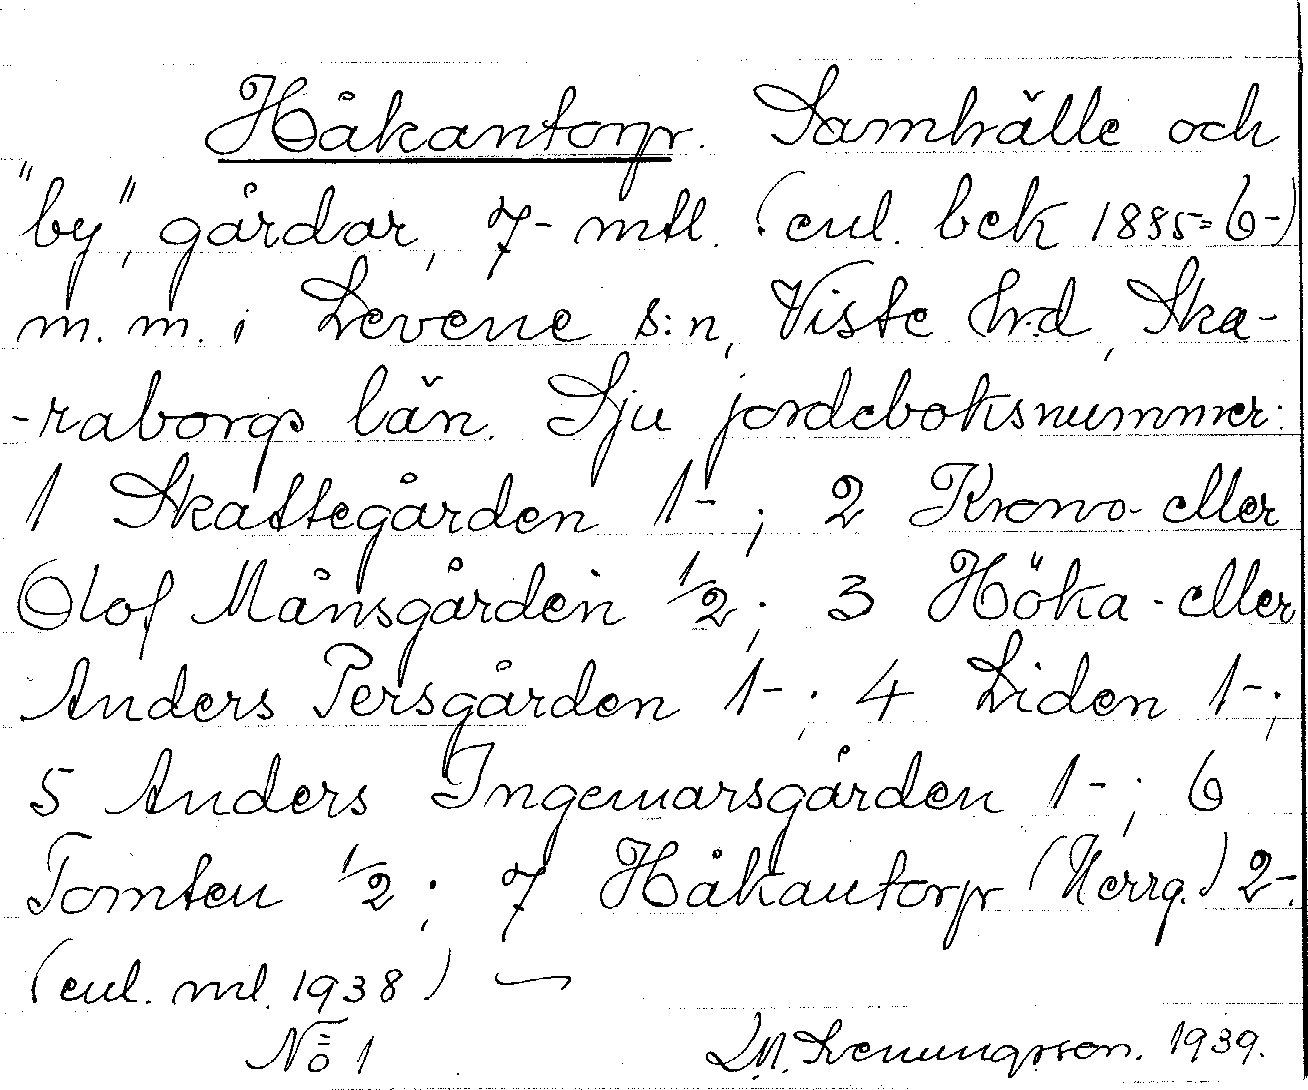 Håkantorp. Samhälle och
"by", gårdar, 7- mtl. (enl. bek 1885=6-)
m. m. i Levene s:n, Viste hrd, Ska-
-raborgs län. Sju jordeboksnummer:
1 Skattegården 1-; 2 Krono- eller
Olof Månsgården 1/2; 3 Höka- eller
Anders Persgården 1-; 4 Liden 1-;
5 Anders Ingemarsgården 1-; 6
Tomten 1/2; 7 Håkantorp (Herrg.) 2-.
(enl. ml. 1938) —
No 1 1939.